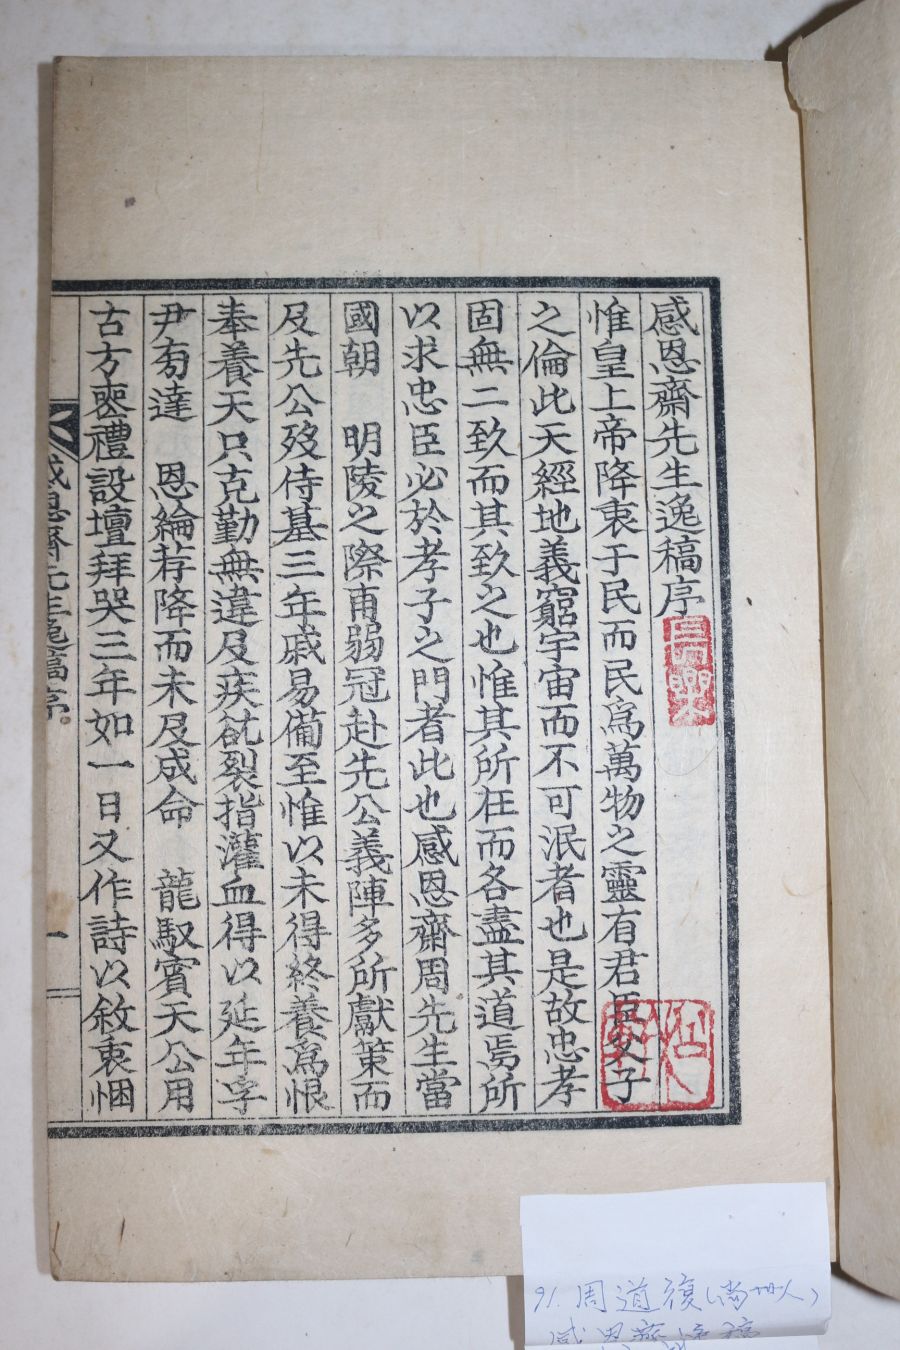 感恩齋先生逸稿序
惟皇上帝降衷于民而民爲萬物之靈有君臣父子
之倫此天經地義窮宇宙而不可泯者也是故忠孝
固無二致而其致之也惟其所在而各盡其道焉所
以求忠臣必於孝子之門者此也感恩齋周先生當
國朝　明陵之際甫弱冠赴先公義陣多所獻策而
及先公歿侍墓三年戚易備至惟以未得終養爲恨
奉養天只克勤無違及疾欲裂指灌血得以延年孚
尹旁達　恩綸荐降而未及成命　龍馭賓天公用
古方喪禮設壇拜哭三年如一日又作詩以敘衷悃
感恩齋先生逸稿序
一
91. 周道復
感恩齋逸稿